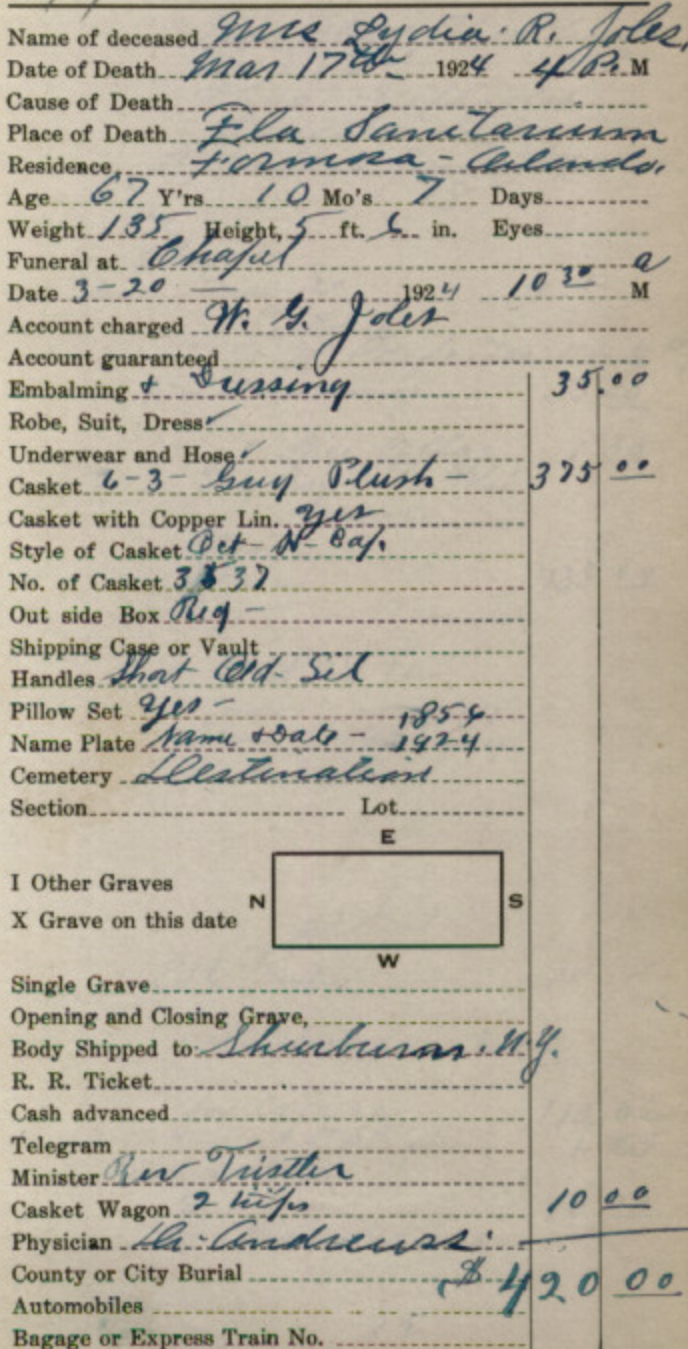 Name of deceased Mrs Lydia R. Joles,
Date of Death Mar 17th 1924 4 P. M
Cause of Death
Place of Death Fla Sanitarium
Residence Formosa - Orlando.
Age 67 Y'rs 10 Mo's 7 Days
Weight 135 Height, 5 ft. 6 in. Eyes
Funeral at Chapel
Date 3-20 — 1924 10 30 a M
Account charged W. G. Joles
Account guaranteed
Embalming & Dressing 35.00
Robe, Suit, Dress ✓
Underwear and Hose ✓
Casket 6-3- Gray Plush - 375 00
Casket with Copper Lin. yes
Style of Casket Oct - Cap.
No. of Casket
Out side Box Reg -
Shipping Case or Vault
Handles Short Old. Sil
Pillow Set yes -
Name Plate Name & Date - 1856 1924
Cemetery Destination
Section Lot
E
I Other Graves
N S
X Grave on this date
W
Single Grave
Opening and Closing Grave,
Body Shipped to N.Y.
R. R. Ticket
Cash advanced
Telegram
Minister Rev Tristler
Casket Wagon 2 trips 10 00
Physician Dr. Andrews.
County or City Burial $ 420 00
Automobiles
Bagage or Express Train No.